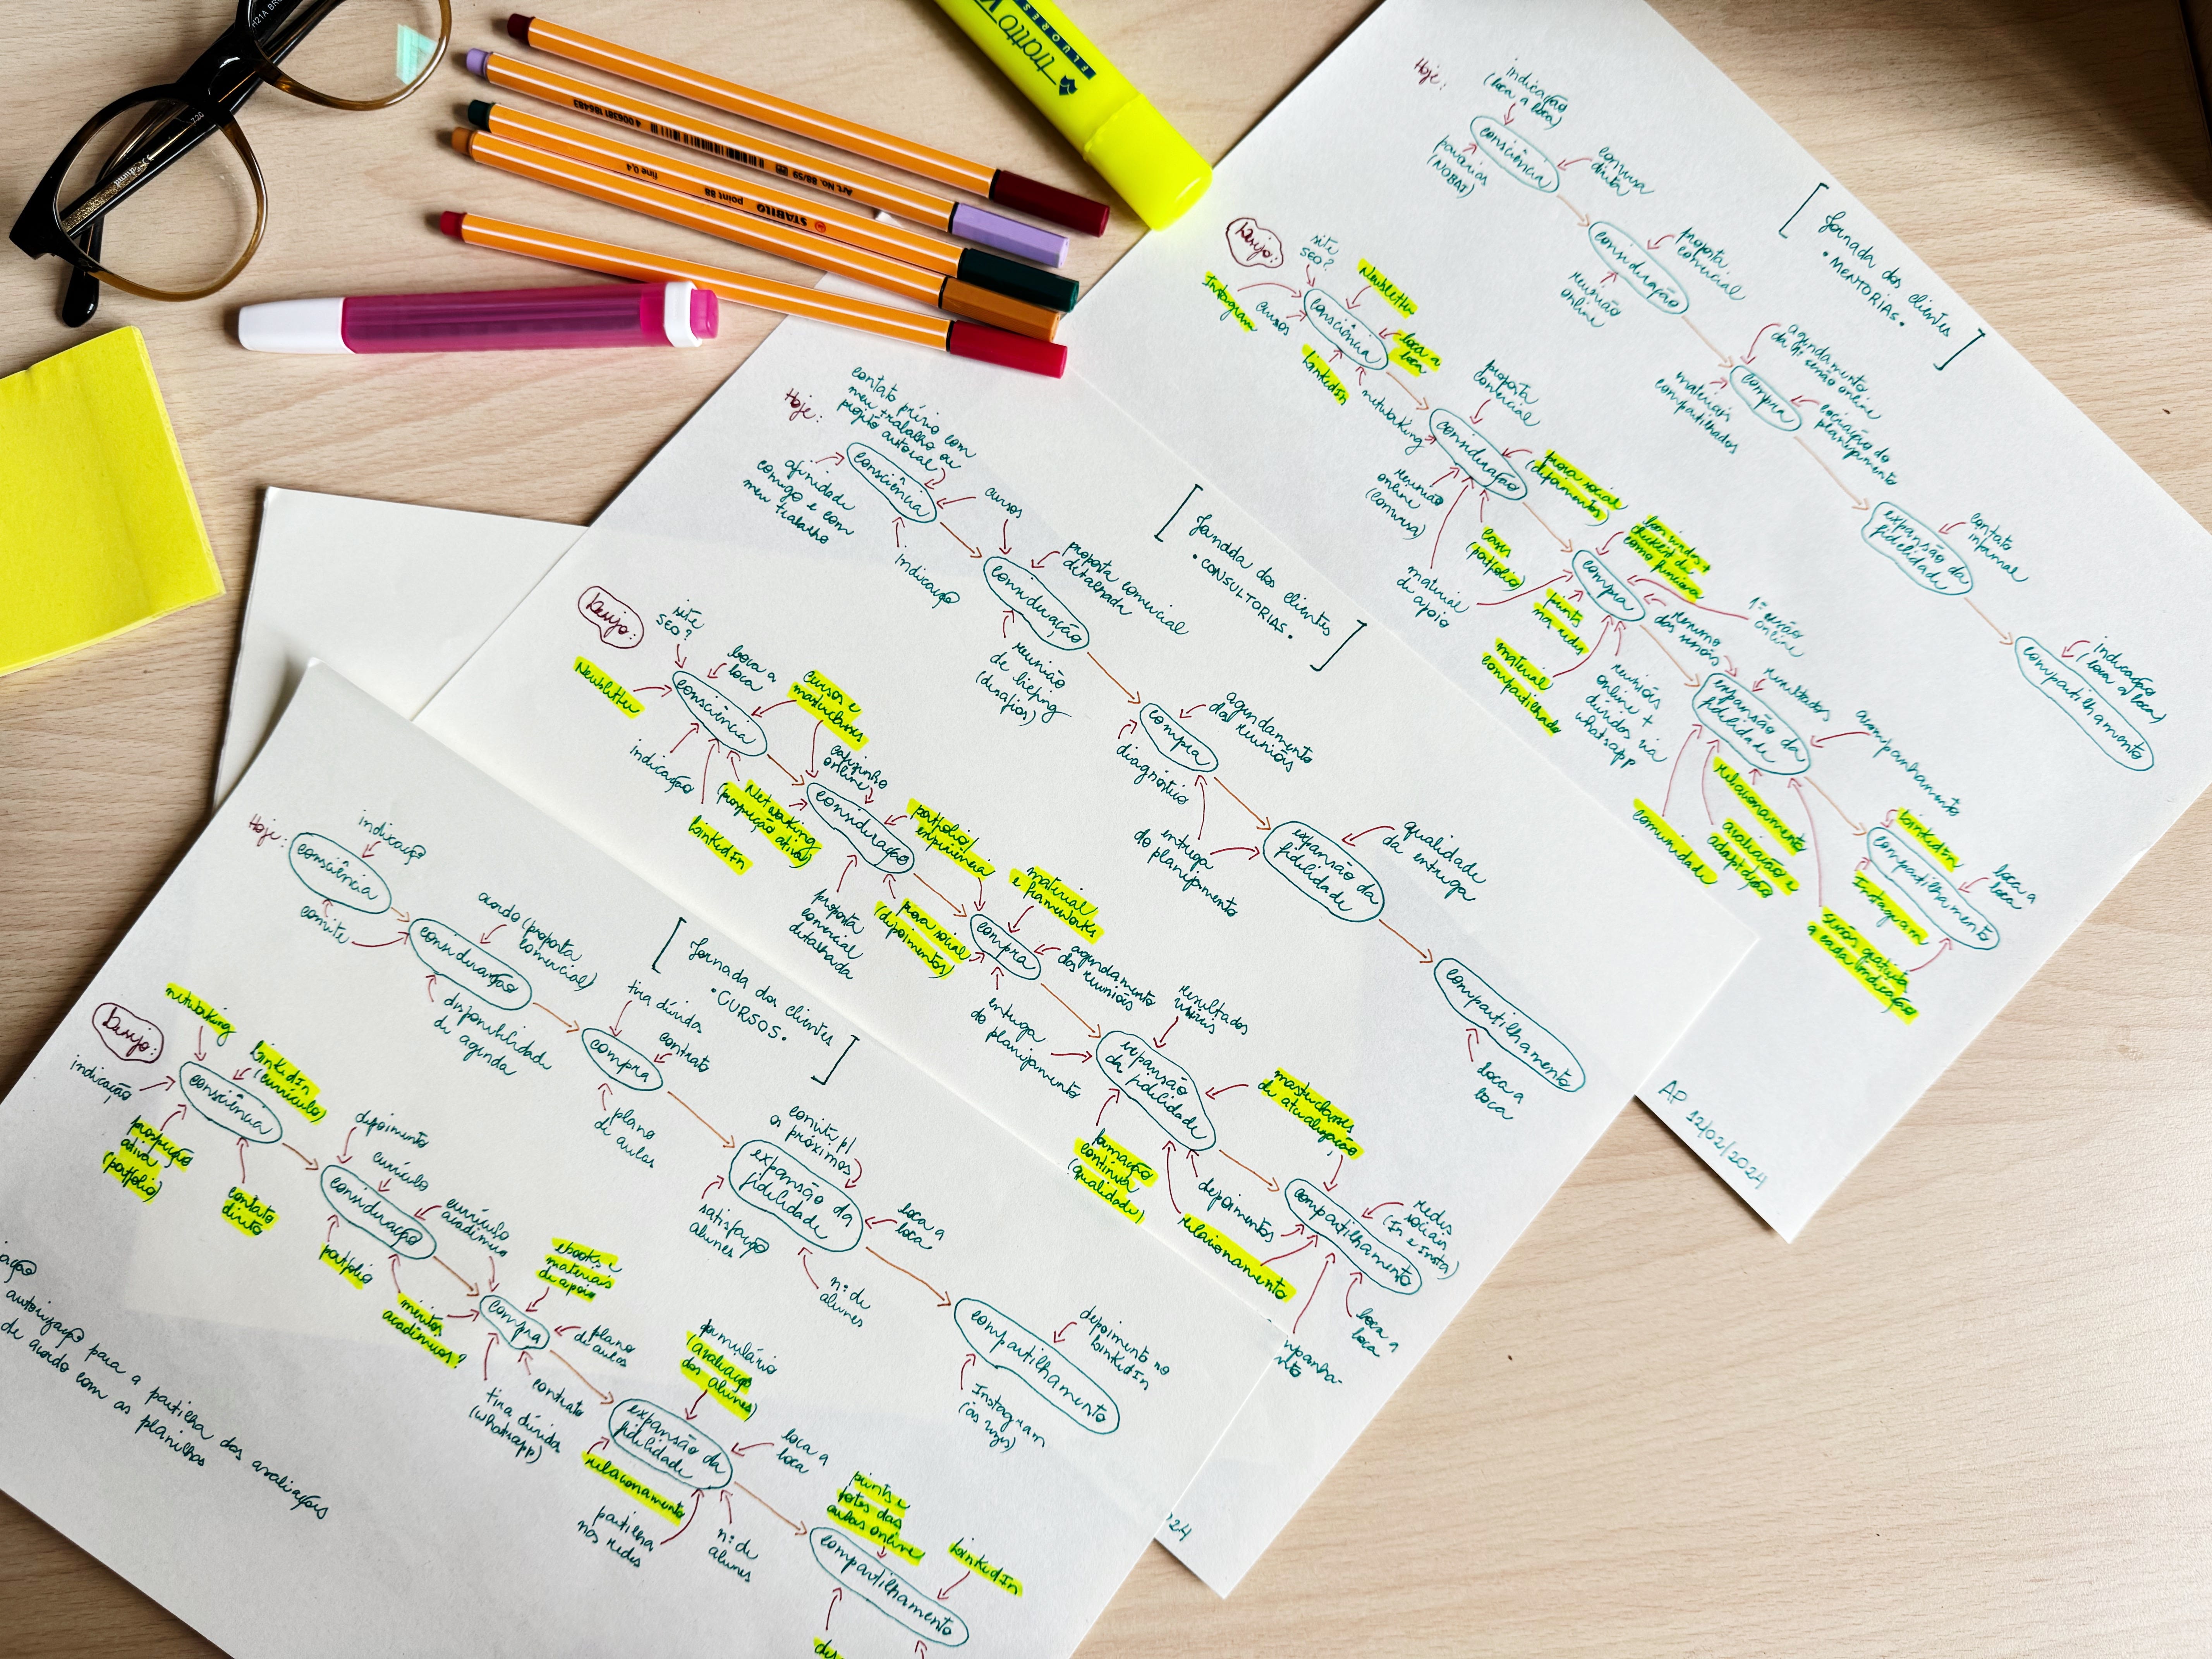 STABILO
point 88
fine 0,4
Art. No. 88/59
4 006381 186483
tratto
FLUORES
Hoje:
indicação
(boca a boca)
consciência
parcerias
(NOBAI)
conversa
direta
consideração
proposta
comercial
reunião
online
[Jornada dos clientes
• MENTORIAS •]
compra
agendamento
da 1ª sessão online
materiais
compartilhados
cocriação do
planejamento
expansão da
fidelidade
contato
informal
compartilhamento
indicação
(boca a boca)
Desejo:
site
SEO?
Newsletter
Instagram
cursos
consciência
boca a
boca
LinkedIn
networking
proposta
comercial
consideração
prova social
(depoimentos)
reunião
online
(conversa)
cases
(portfólio)
material
de apoio
boas vindas +
checklist de
como funciona
compra
prints
nas redes
1ª sessão
online
resumo
das sessões
material
compartilhado
reuniões
online +
dúvidas via
whatsapp
resultados
expansão da
fidelidade
acompanhamento
relacionamento
comunidade
avaliação e
adaptação
LinkedIn
compartilhamento
boca a
boca
Instagram
sessão gratuita
a cada indicação
AP 12/02/2024
Hoje:
contato prévio com
meu trabalho ou
projeto autoral
consciência
afinidade
comigo e com
meu trabalho
cursos
indicação
consideração
proposta comercial
detalhada
reunião
de briefing
(desafios)
[Jornada dos clientes
• CONSULTORIAS •]
compra
agendamento
das reuniões
diagnóstico
entrega
do planejamento
expansão da
fidelidade
qualidade
da entrega
compartilhamento
boca a
boca
Desejo:
site
SEO?
boca a
boca
cursos e
masterclasses
Newsletter
consciência
indicação
cafezinho
online
Networking
(prospecção ativa)
LinkedIn
consideração
portfólio/
experiência
proposta
comercial
detalhada
prova social
(depoimentos)
material
e frameworks
compra
agendamento
das reuniões
entrega
do planejamento
resultados
expansão
da fidelidade
masterclasses
de atualização
formação
contínua
(qualidade)
depoimentos
relacionamento
compartilhamento
redes
sociais
(In e insta)
boca a
boca
mpanha-
nto
24
Hoje:
indicação
consciência
convite
acordo (proposta
comercial)
consideração
disponibilidade
de agenda
[Jornada dos clientes
• CURSOS •]
tira dúvidas
contrato
compra
plano
de aulas
convite p/
os próximos
expansão da
fidelidade
boca a
boca
satisfação
alunes
n: de
alunes
compartilhamento
depoimento no
LinkedIn
Instagram
(às vezes)
Desejo:
networking
LinkedIn
(currículo)
indicação
consciência
prospecção
ativa
(portfólio)
contato
direto
depoimento
currículo
consideração
currículo
acadêmico
portfólio
méritos
acadêmicos?
ebooks e
materiais
de apoio
compra
plano
de aulas
contrato
tira dúvidas
(whatsapp)
formulário
(avaliação
dos alunes)
expansão da
fidelidade
boca a
boca
relacionamento
partilha
nas redes
n: de
alunes
prints e
fotos das
aulas online
LinkedIn
compartilhamento
autorização para a partilha das avaliações
de acordo com as planilhas